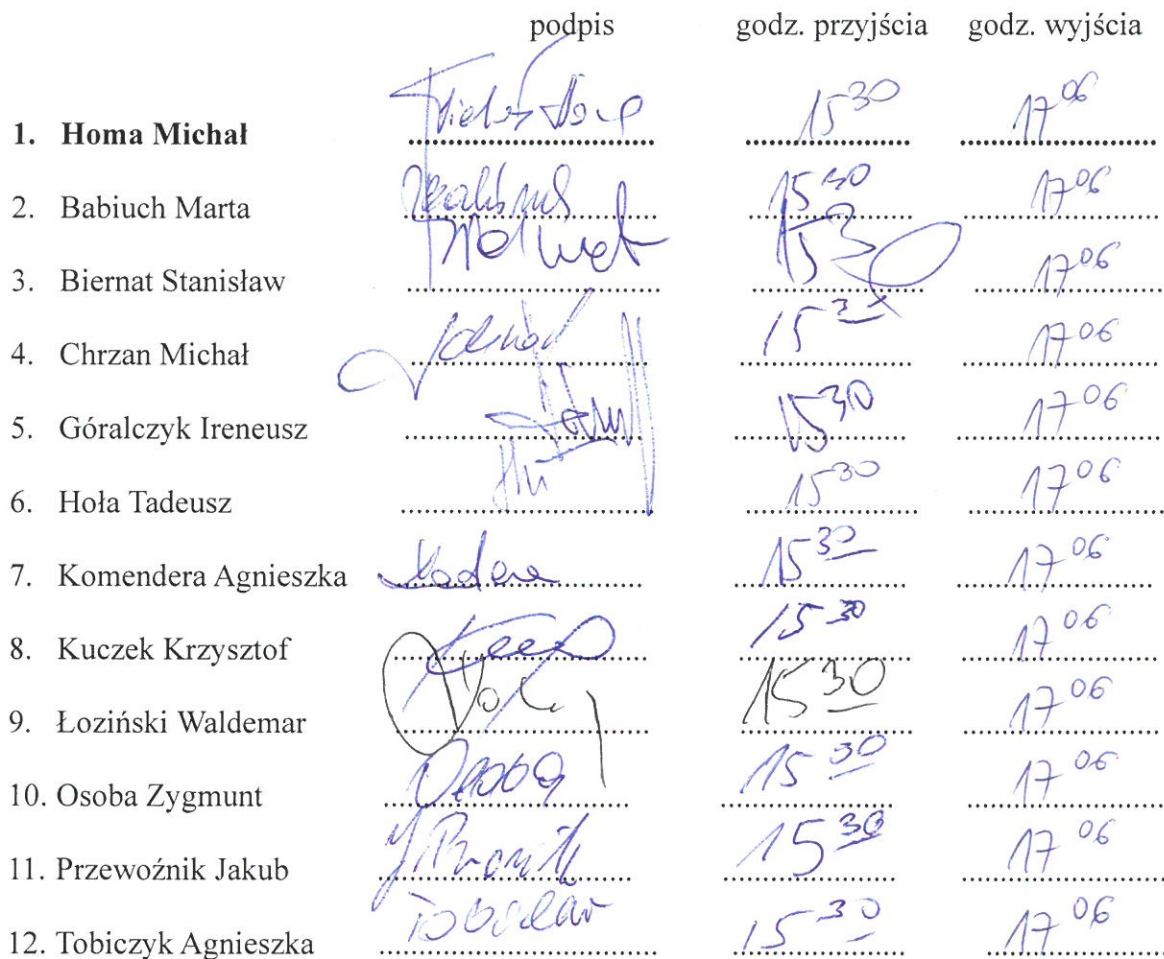 podpis godz. przyjścia godz. wyjścia
1. Homa Michał 15 30 17 06
2. Babiuch Marta 15 30 17 06
3. Biernat Stanisław 15 30 17 06
4. Chrzan Michał 15 17 06
5. Góralczyk Ireneusz 15 30 17 06
6. Hoła Tadeusz 15 30 17 06
7. Komendera Agnieszka 15 30 17 06
8. Kuczek Krzysztof 15 30 17 06
9. Łoziński Waldemar 15 30 17 06
10. Osoba Zygmunt Osoba 15 30 17 06
11. Przewoźnik Jakub 15 30 17 06
12. Tobiczyk Agnieszka 15 30 17 06